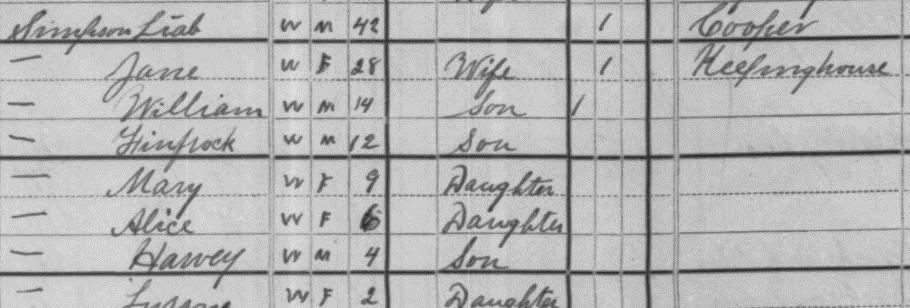 Simpson Liab W M 42 1 Cooper
— Jane W F 28 Wife 1 Keepinghouse
— William W M 14 Son 1
— W M 12 Son
— Mary W F 9 Daughter
— Alice W F 6 Daughter
— Harvey W M 4 Son
— W F 2 Daughter